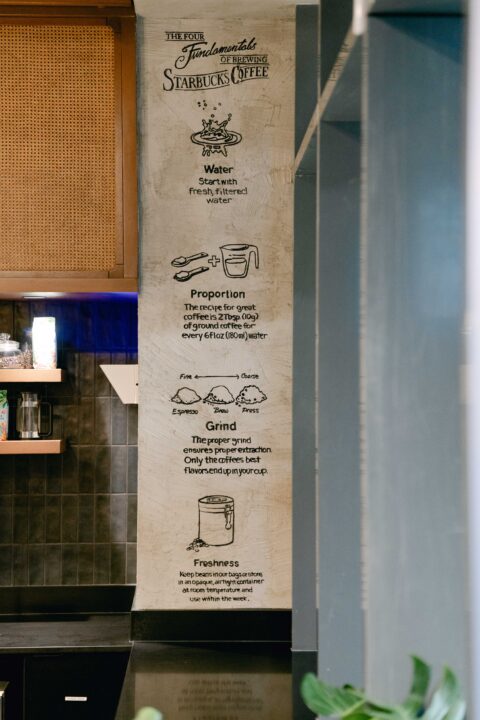 THE FOUR
Fundamentals
OF BREWING
STARBUCKS COFFEE
Water
Start with
fresh, filtered
water
Proportion
The recipe for great
coffee is 2 Tbsp (10g)
of ground coffee for
every 6 fl oz (180ml) water
Fine Coarse
Espresso Brew Press
Grind
The proper grind
ensures proper extraction.
Only the coffees best
flavors end up in your cup.
Freshness
Keep beans in our bags or store
in an opaque, airtight container
at room temperature and
use within the week.